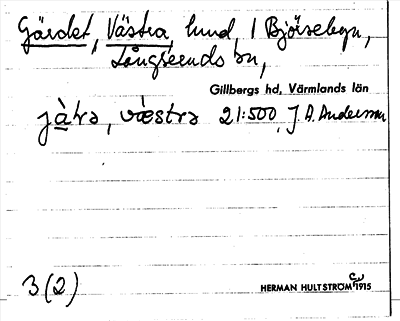 Gärdet, Västra, hmd 1 Björsebyn,
Långseruds sn,
Gillbergs hd, Värmlands län
jàtrə, væstrə 21:500, J. A. Anderson
3 (2)
HERMAN HULTSTRÖM 1915